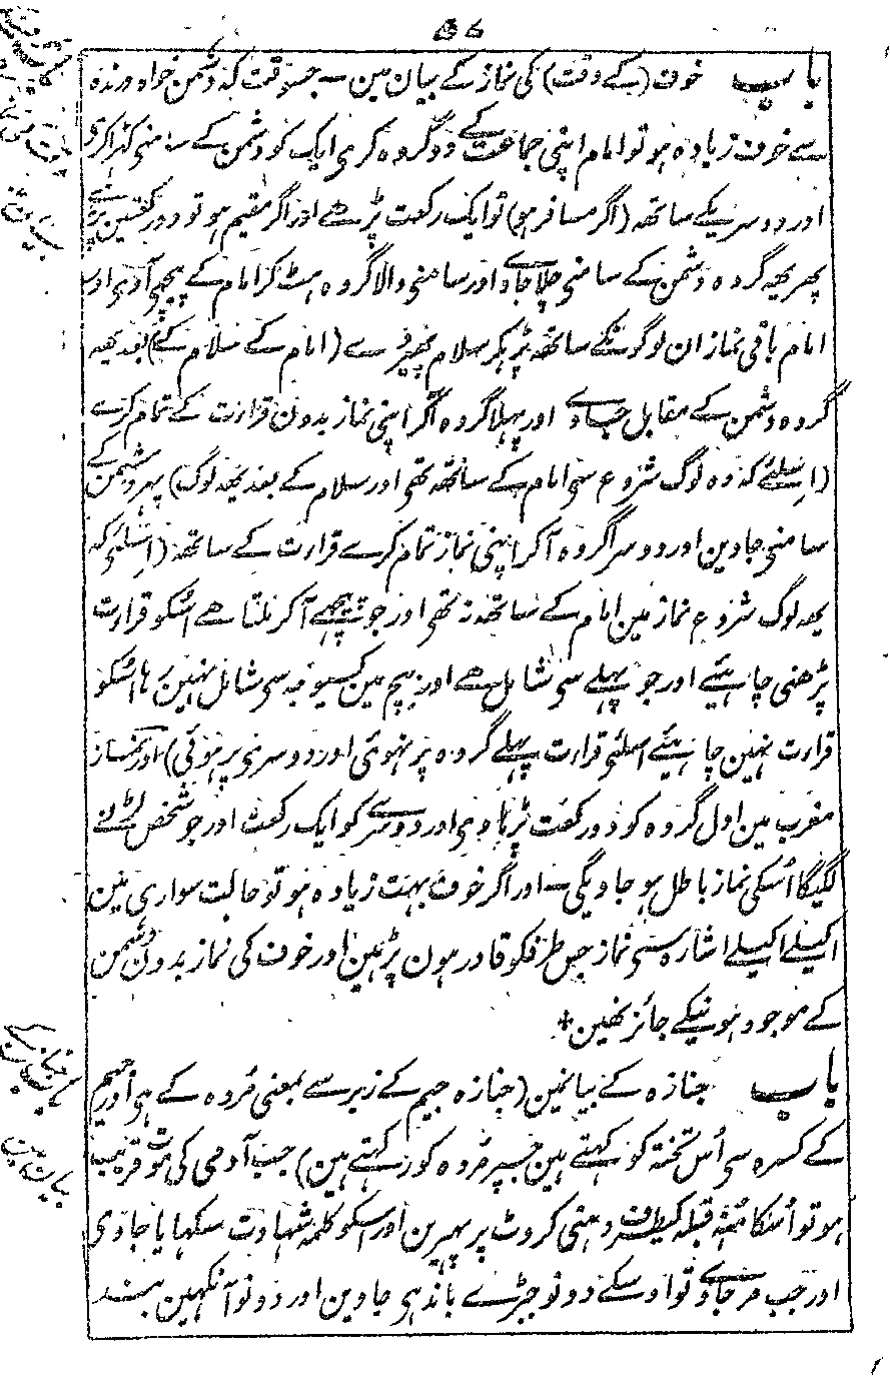 ۵۷
باب خوف (کے وقت) کی نماز کے بیان مین ۔ جسوقت کہ دشمن خواہ درندہ
سے خوف زیادہ ہو تو امام اپنی جماعت کے دو گروہ کرے ایک کو دشمن کے سامنی کھڑا کرے
اور دوسریکے ساتھہ (اگر مسافر ہو) تو ایک رکعت پڑھے اور اگر مقیم ہو تو دو رکعتین پڑھے
پھر یھہ گروہ دشمن کے سامنی چلا جاوے اور سامنی والا گروہ ہٹ کر امام کے پیچھی آوے اور
امام باقی نماز ان لوگونکے ساتھہ پڑہکر سلام پھیرے (امام کے سلام کے) بعد یھہ
گروہ دشمن کے مقابل جاوے اور پہلا گروہ آکر اپنی نماز بدون قرارت کے تمام کرے
(اسلئے کہ وہ لوگ شروع سی امام کے ساتھہ تھی اور سلام کے بعد یھہ لوگ) پہر دشمن کے
سامنی جاوین اور دوسرا گروہ آکر اپنی نماز تمام کرے قرارت کے ساتھہ (اسلئی کہ
یھہ لوگ شروع نماز مین امام کے ساتھہ نہ تھی اور جو پیچھے آکر ملتا ھے اسکو قرارت
پڑھنی چاہئیے اور جو پہلے سی شامل ھے اور بیچ مین کسیوجہ سی شامل نہین رہا اسکو
قرارت نہین چاہئیے اسلئی قرارت پہلے گروہ پر نہوئی اور دوسری پر ہوئی) اور نماز
مغرب مین اول گروہ کو دو رکعت پڑہاوی اور دوسرے کو ایک رکعت اور جو شخص لڑنے
لگیگا اسکی نماز باطل ہو جاویگی ۔ اور اگر خوف بہت زیادہ ہو تو حالت سواری مین
اکیلے اکیلے اشارہ سی نماز جس طرفکو قادر ہون پڑہین اور خوف کی نماز بدون دشمن
کے موجود ہونیکے جائز نھین +
باب جنازہ کے بیانمین (جنازہ جیم کے زبر سے بمعنی مردہ کے ہی اور جیم
کے کسرہ سی اُس تختہ کو کہتے ہین جسپر مردہ کو رکہتے ہین) جب آدمی کی موت قریب
ہو تو اُسکا مُنہ قبلہ کیطرف دہنی کروٹ پر پہیرین اور اسکو کلمہ شہادت سکہایا جاوی
اور جب مر جاوے تو اوسکے دونو جبڑے باندہی جاوین اور دونو آنکہین بند